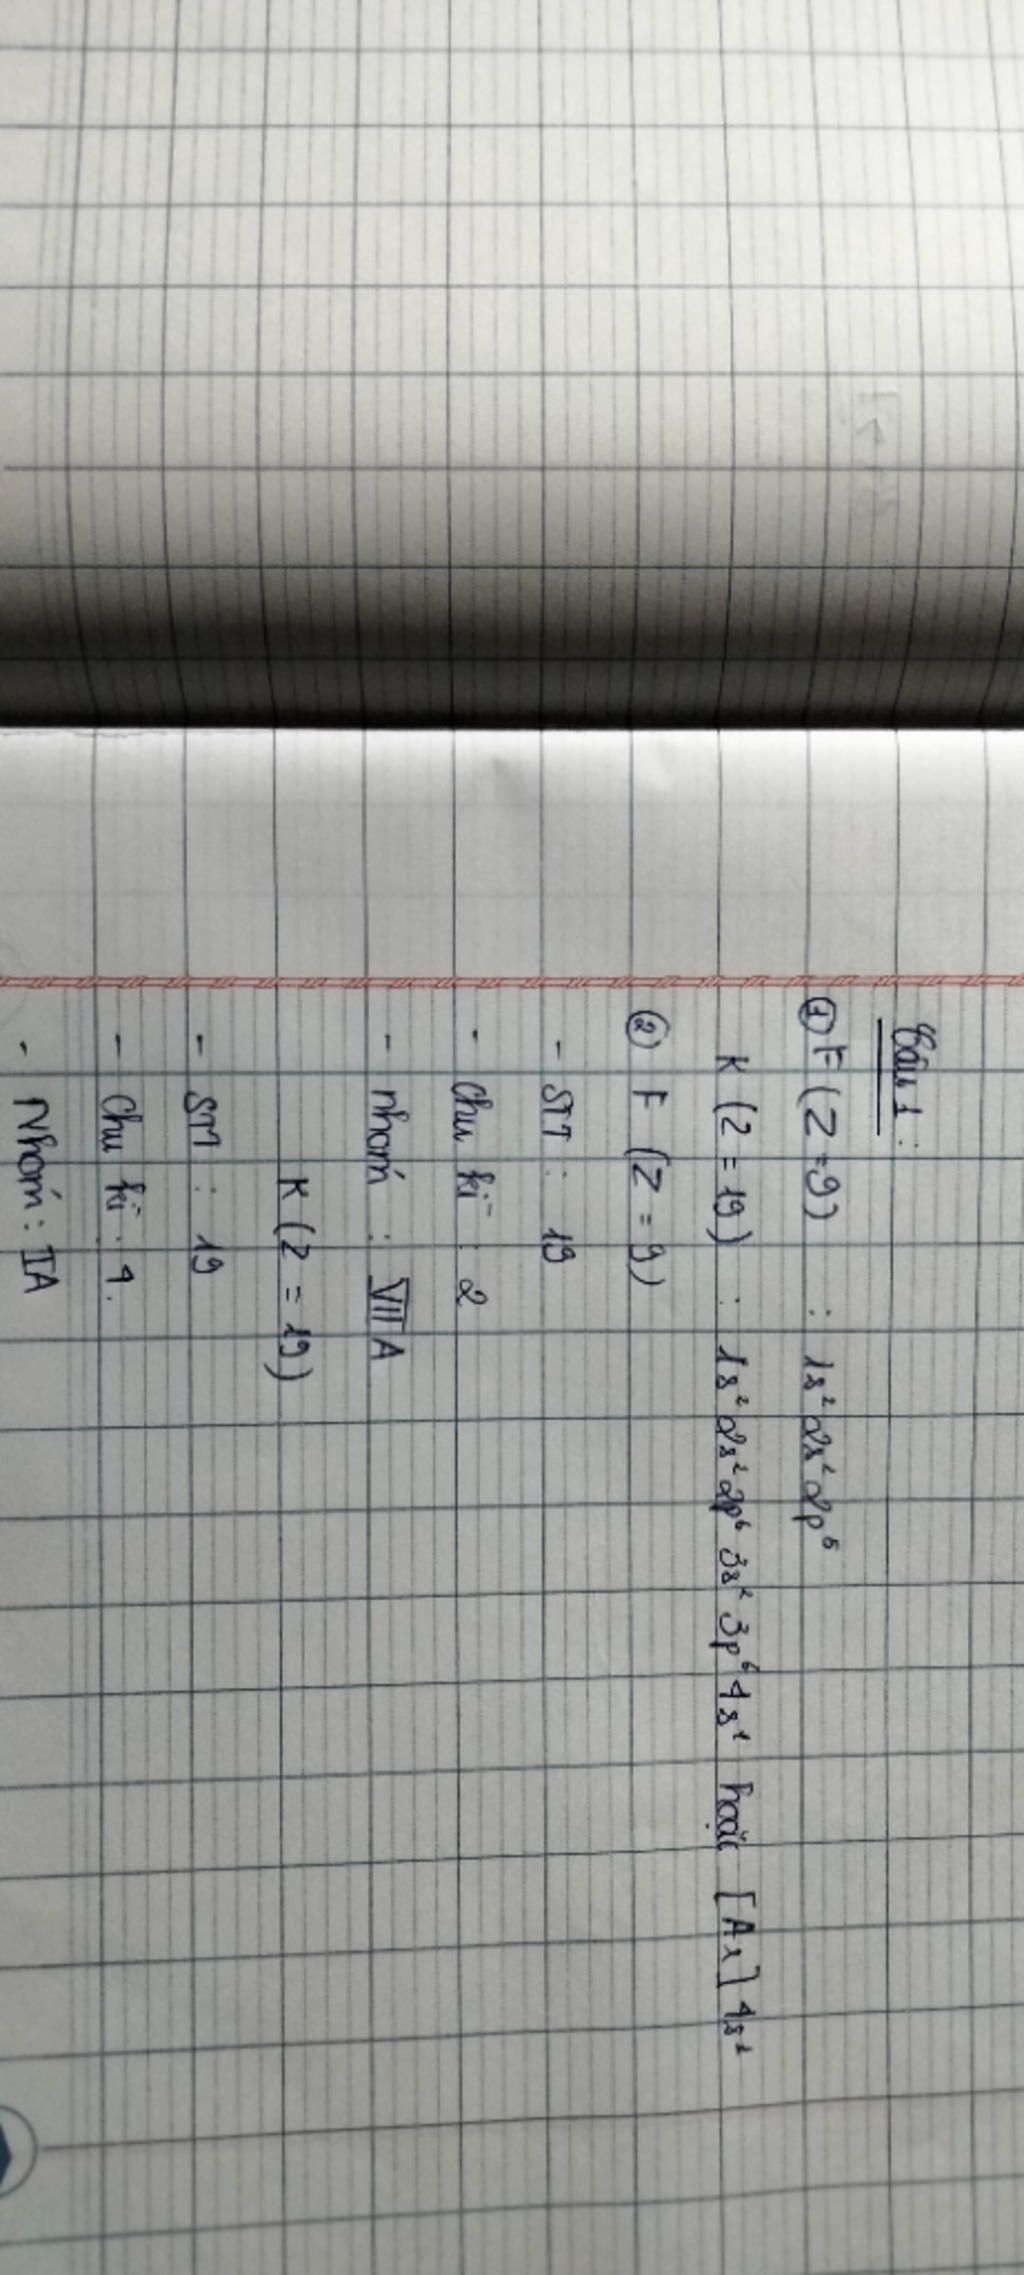 Câu 1 :
① F (Z=9) : 1s² 2s² 2p⁵
K (Z=19) : 1s² 2s² 2p⁶ 3s² 3p⁶ 4s¹ hoặc [Ar] 4s¹
② F (Z=9)
- STT : 19
- Chu kì : 2
- nhóm : VIIIA
K (Z=19)
- STT : 19
- Chu kì : 4.
- Nhóm : IA